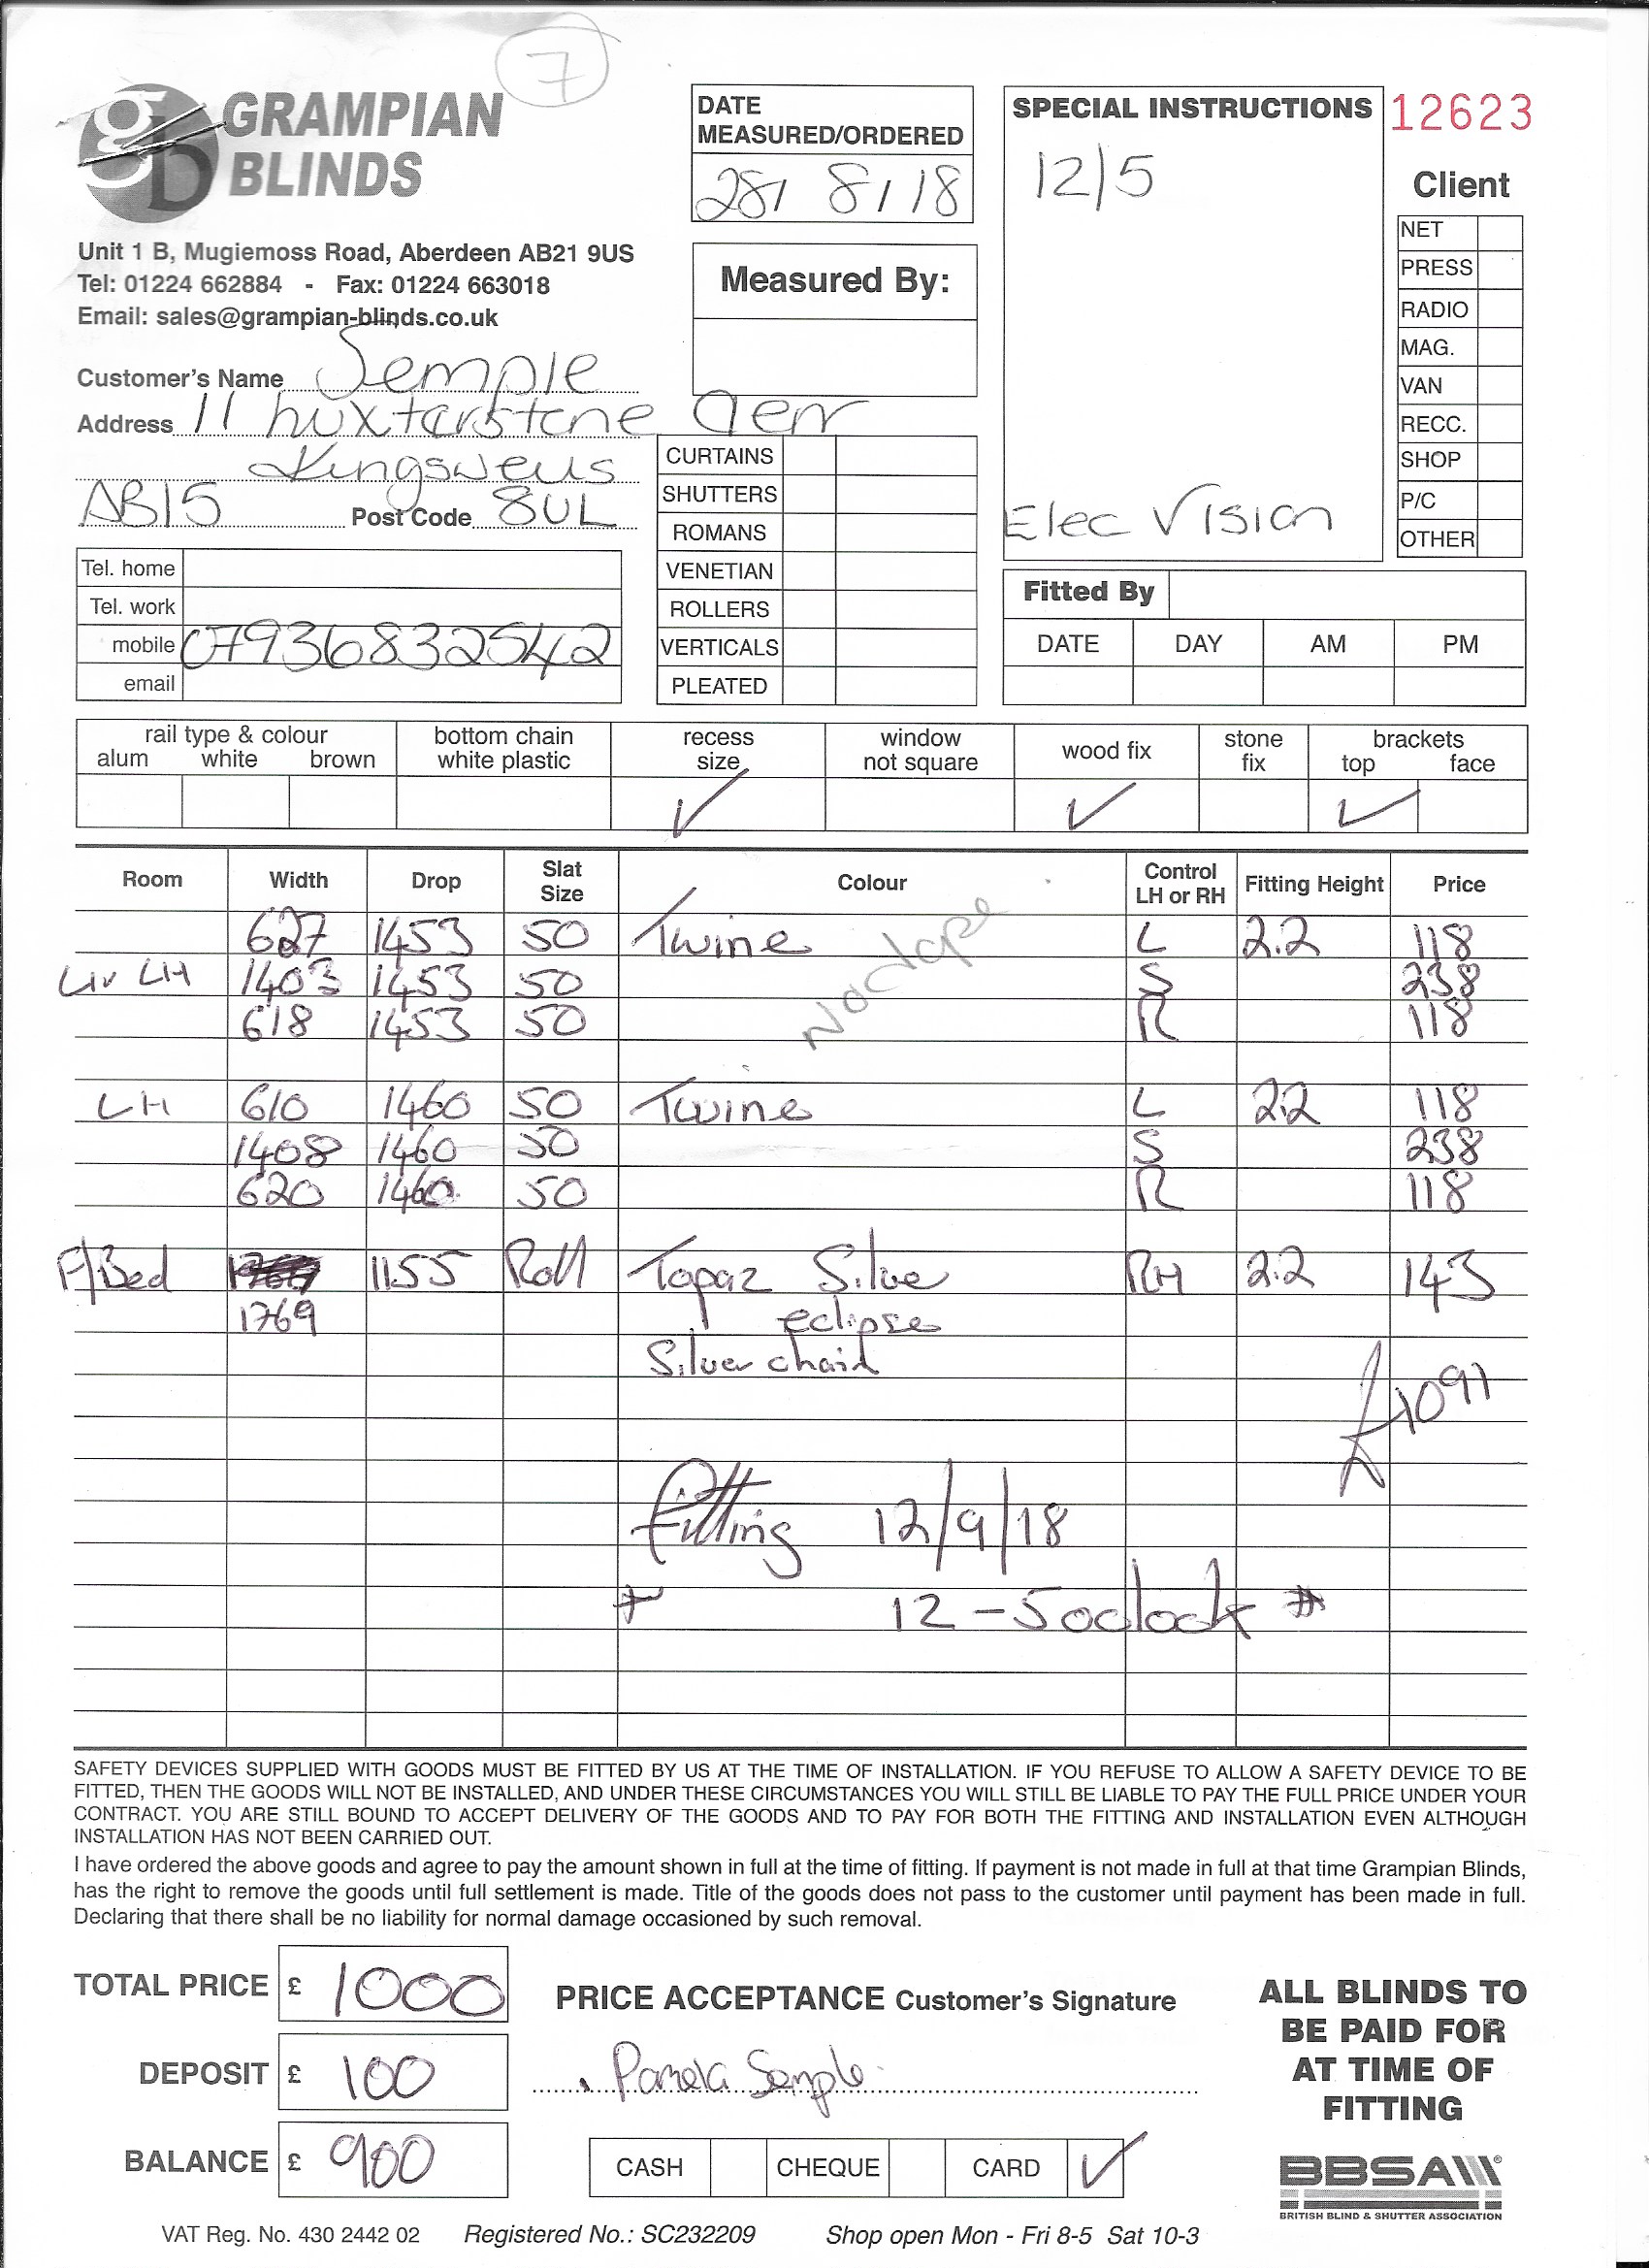 7
GRAMPIAN
BLINDS
Unit 1 B, Mugiemoss Road, Aberdeen AB21 9US
Tel: 01224 662884 - Fax: 01224 663018
Email: sales@grampian-blinds.co.uk
DATE
MEASURED/ORDERED
28/ 8/ 18
Measured By:
SPECIAL INSTRUCTIONS
12/5
Elec Vision
12623
Client
NET
PRESS
RADIO
MAG.
VAN
RECC.
SHOP
P/C
OTHER
Customer's Name Semple
Address 11 huxterstone
Kingswells
AB15 Post Code 8UL
Tel. home
Tel. work
mobile 07936832542
email
CURTAINS
SHUTTERS
ROMANS
VENETIAN
ROLLERS
VERTICALS
PLEATED
Fitted By
DATE DAY AM PM
rail type & colour
alum white brown
bottom chain
white plastic
recess
size ✓
window
not square
wood fix ✓
stone
fix
brackets
top face
✓
Room Width Drop Slat Size Colour Control LH or RH Fitting Height Price
627 1453 50 Twine L 2.2 118
No tape
Liv LH 1403 1453 50 S 238
618 1453 50 R 118
LH 610 1460 50 Twine L 2.2 118
1408 1460 50 S 238
620 1460 50 R 118
F/Bed 1155 Roll Topaz Silve RH 2.2 143
1769 eclipse
Silver chain
£1091
Fitting 12/9/18
* 12 - 5 oclock *
SAFETY DEVICES SUPPLIED WITH GOODS MUST BE FITTED BY US AT THE TIME OF INSTALLATION. IF YOU REFUSE TO ALLOW A SAFETY DEVICE TO BE
FITTED, THEN THE GOODS WILL NOT BE INSTALLED, AND UNDER THESE CIRCUMSTANCES YOU WILL STILL BE LIABLE TO PAY THE FULL PRICE UNDER YOUR
CONTRACT. YOU ARE STILL BOUND TO ACCEPT DELIVERY OF THE GOODS AND TO PAY FOR BOTH THE FITTING AND INSTALLATION EVEN ALTHOUGH
INSTALLATION HAS NOT BEEN CARRIED OUT.
I have ordered the above goods and agree to pay the amount shown in full at the time of fitting. If payment is not made in full at that time Grampian Blinds,
has the right to remove the goods until full settlement is made. Title of the goods does not pass to the customer until payment has been made in full.
Declaring that there shall be no liability for normal damage occasioned by such removal.
TOTAL PRICE £ 1000
DEPOSIT £ 100
BALANCE £ 900
PRICE ACCEPTANCE Customer's Signature
Pamela Semple
CASH CHEQUE CARD ✓
ALL BLINDS TO
BE PAID FOR
AT TIME OF
FITTING
BBSA
BRITISH BLIND & SHUTTER ASSOCIATION
VAT Reg. No. 430 2442 02 Registered No.: SC232209 Shop open Mon - Fri 8-5 Sat 10-3